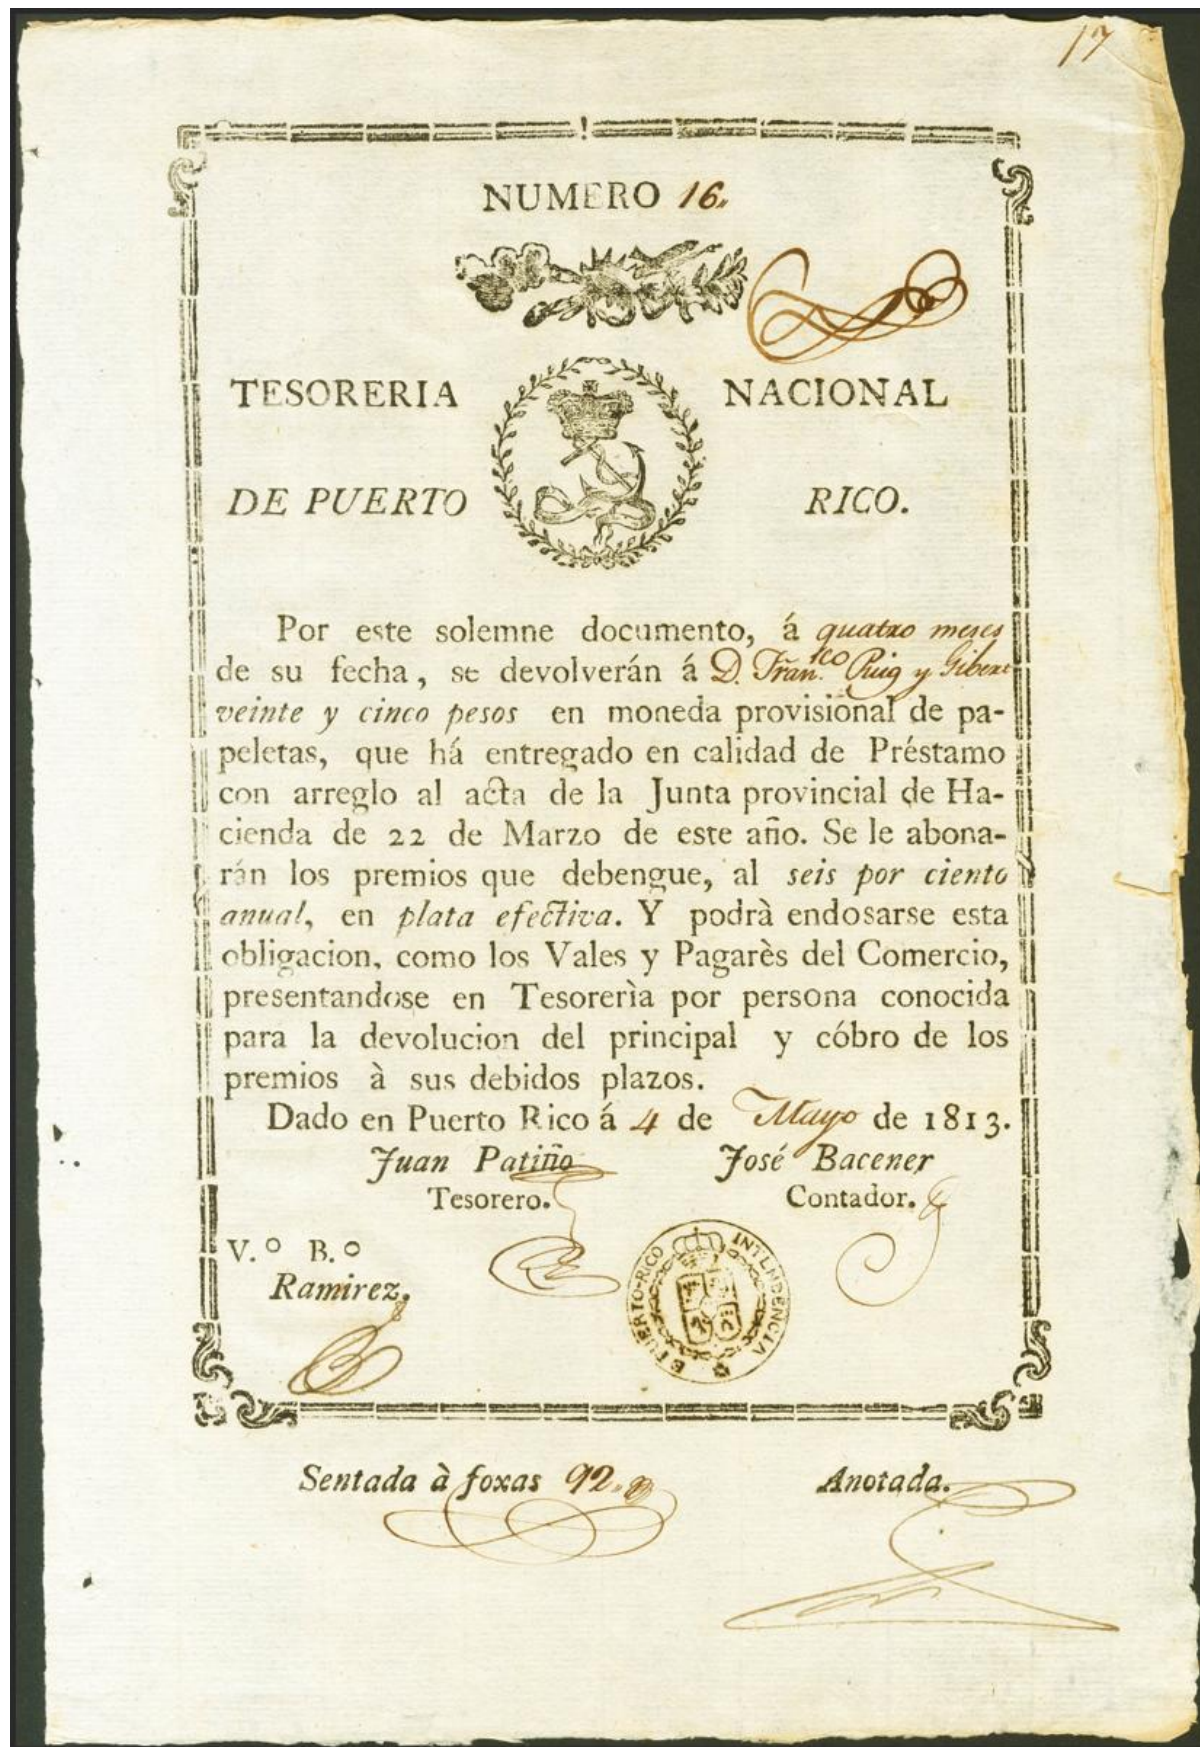 17
NUMERO 16.
TESORERIA NACIONAL
DE PUERTO RICO.
Por este solemne documento, á quatro meses
de su fecha, se devolverán á D. Fran.co Puig y Gibert
veinte y cinco pesos en moneda provisional de pa-
peletas, que há entregado en calidad de Préstamo
con arreglo al acta de la Junta provincial de Ha-
cienda de 22 de Marzo de este año. Se le abona-
rán los premios que debengue, al seis por ciento
anual, en plata efectiva. Y podrà endosarse esta
obligacion, como los Vales y Pagarès del Comercio,
presentandose en Tesorerìa por persona conocida
para la devolucion del principal y cóbro de los
premios à sus debidos plazos.
Dado en Puerto Rico á 4 de Mayo de 1813.
Juan Patiño José Bacener
Tesorero. Contador.
V.º B.º
Ramirez.
PUERTO-RICO INTENDENCIA
Sentada à foxas 92. Anotada.